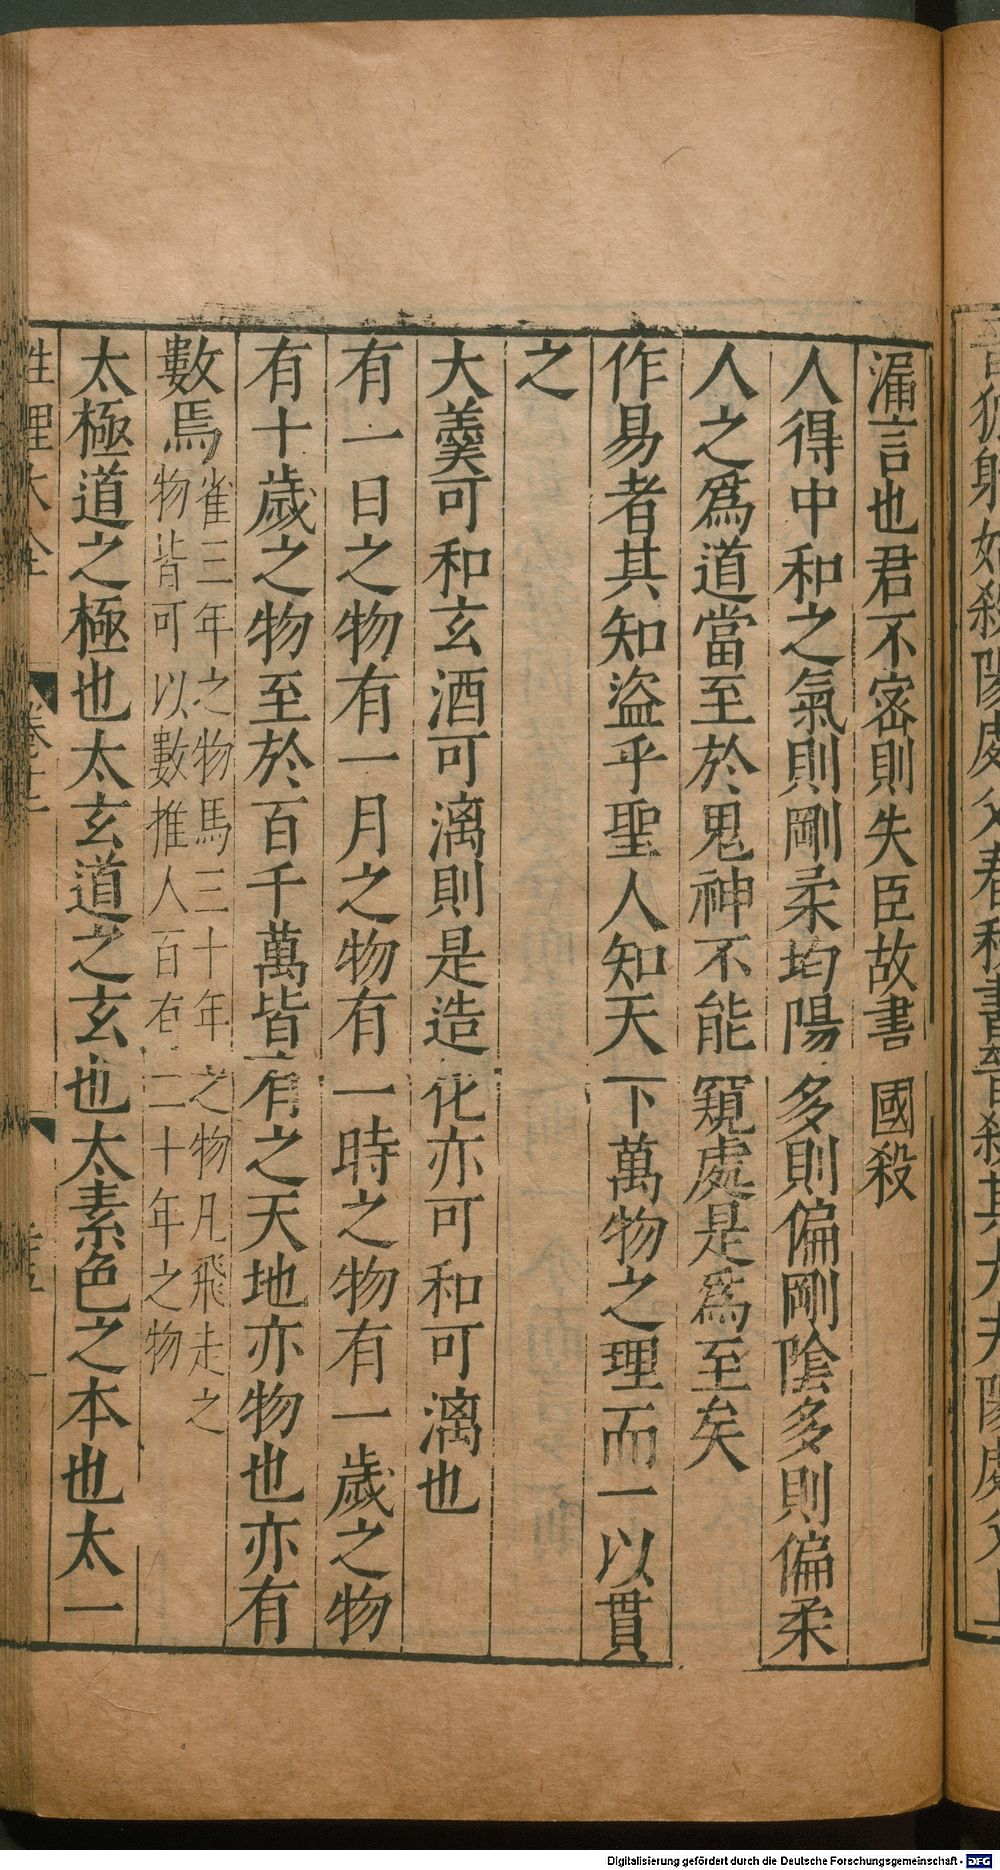 漏言也君不密則失臣故書國殺
人得中和之氣則剛柔均陽多則偏剛陰多則偏柔
人之爲道當至於鬼神不能窺處是爲至矣
作易者其知盜乎聖人知天下萬物之理而一以貫
之
大羹可和玄酒可漓則是造化亦可和可漓也
有一日之物有一月之物有一時之物有一歲之物
有十歲之物至於百千萬皆有之天地亦物也亦有
數焉雀三年之物馬三十年之物凡飛走之
物皆可以數推人百有二十年之物
太極道之極也太玄道之玄也太素色之本也太一
性理大全
Digitalisierung gefördert durch die Deutsche Forschungsgemeinschaft - DFG